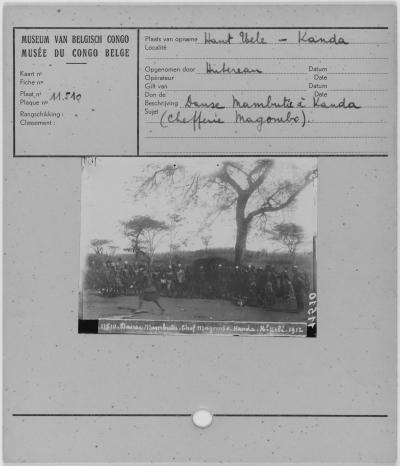 MUSEUM VAN BELGISCH CONGO
MUSÉE DU CONGO BELGE
Kaart nr
Fiche no
Plaat nr
Plaque no 11.510
Rangschikking :
Classement :
Plaats van opname Haut Uele - Kanda
Localité
Opgenomen door Hutereau Datum
Opérateur Date
Gift van Datum
Don de Date
Beschrijving Danse Mambutu à Kanda
Sujet (Chefferie Magombo).
11510. Danse Mambutu. Chef Magombo. Kanda. Ht Uelé. 1912
11510